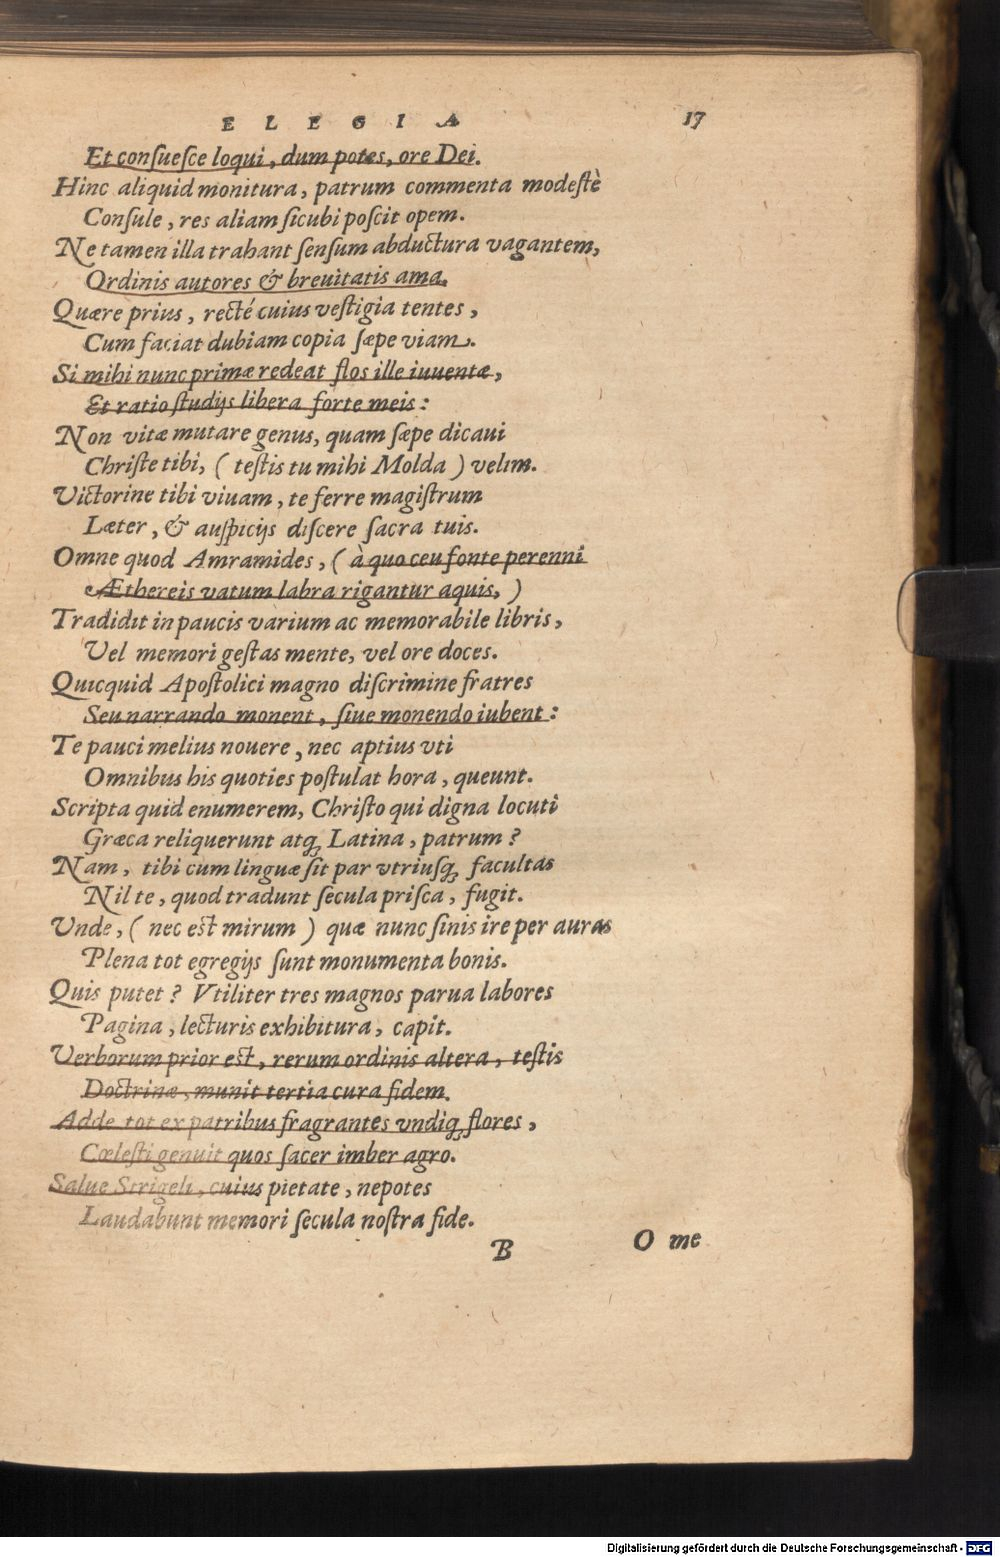 ELEGIA 17
Et conſueſce loqui, dum potes, ore Dei.
Hinc aliquid monitura, patrum commenta modeſtè
Conſule, res aliam ſicubi poſcit opem.
Ne tamen illa trahant ſenſum abductura vagantem,
Ordinis autores & breuitatis ama.
Quære prius, recté cuius veſtigia tentes,
Cum faciat dubiam copia ſæpe viam.
Si mihi nunc primæ redeat flos ille iuuentæ,
Et ratio ſtudijs libera forte meis:
Non vitæ mutare genus, quam ſæpe dicaui
Chriſte tibi, (teſtis tu mihi Molda) velim.
Victorine tibi viuam, te ferre magiſtrum
Læter, & auſpicijs diſcere ſacra tuis.
Omne quod Amramides, (à quo ceu fonte perenni
Æthereis vatum labra rigantur aquis,)
Tradidit in paucis varium ac memorabile libris,
Vel memori geſtas mente, vel ore doces.
Quicquid Apoſtolici magno diſcrimine fratres
Seu narrando monent, ſiue monendo iubent:
Te pauci melius nouere, nec aptius vti
Omnibus his quoties poſtulat hora, queunt.
Scripta quid enumerem, Chriſto qui digna locuti
Græca reliquerunt atq; Latina, patrum?
Nam, tibi cum linguæ ſit par vtriuſq; facultas
Nil te, quod tradunt ſecula priſca, fugit.
Unde, (nec est mirum) quæ nunc ſinis ire per auras
Plena tot egregijs ſunt monumenta bonis.
Quis putet? Vtiliter tres magnos parua labores
Pagina, lecturis exhibitura, capit.
Verborum prior est, rerum ordinis altera, teſtis
Doctrinæ, munit tertia cura fidem.
Adde tot ex patribus fragrantes vndiq; flores,
Cœleſti genuit quos ſacer imber agro.
Salue Strigeli, cuius pietate, nepotes
Laudabunt memori ſecula noſtra fide.
B O me
Digitalisierung gefördert durch die Deutsche Forschungsgemeinschaft - DFG